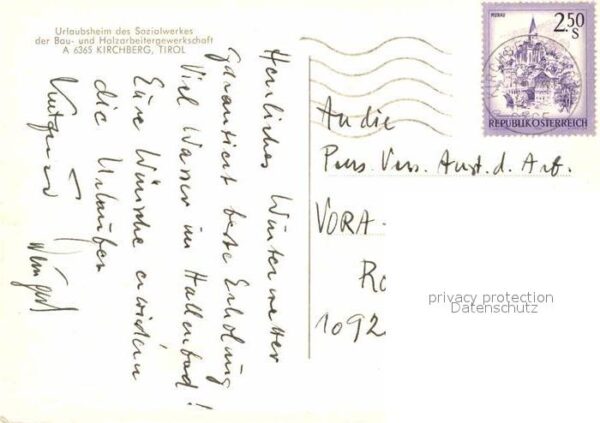 Urlaubsheim des Sozialwerkes
der Bau- und Holzarbeitergewerkschaft
A 6365 KIRCHBERG, TIROL
Herrliches Winterwetter
garantiert beste Erholung
Viel Wasser im Hallenbad!
Eure Wünsche erwidern
die Urlauber
MURAU
2.50
S
REPUBLIK ÖSTERREICH
An die
Pens. Vers. Anst. d. Arb.
VORA
Ro
1092
privacy protection
Datenschutz